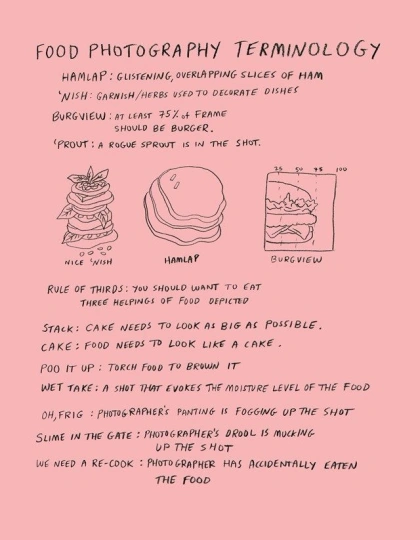 FOOD PHOTOGRAPHY TERMINOLOGY
HAMLAP: GLISTENING, OVERLAPPING SLICES OF HAM
'NISH: GARNISH/HERBS USED TO DECORATE DISHES
BURGVIEW: AT LEAST 75% OF FRAME
SHOULD BE BURGER.
'PROUT: A ROGUE SPROUT IS IN THE SHOT.
25 50 75 100
NICE 'NISH HAMLAP BURGVIEW
RULE OF THIRDS: YOU SHOULD WANT TO EAT
THREE HELPINGS OF FOOD DEPICTED
STACK: CAKE NEEDS TO LOOK AS BIG AS POSSIBLE.
CAKE: FOOD NEEDS TO LOOK LIKE A CAKE.
POO IT UP: TORCH FOOD TO BROWN IT
WET TAKE: A SHOT THAT EVOKES THE MOISTURE LEVEL OF THE FOOD
OH, FRIG: PHOTOGRAPHER'S PANTING IS FOGGING UP THE SHOT
SLIME IN THE GATE: PHOTOGRAPHER'S DROOL IS MUCKING
UP THE SHOT
WE NEED A RE-COOK: PHOTOGRAPHER HAS ACCIDENTALLY EATEN
THE FOOD